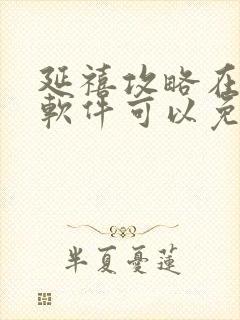 延禧攻略在
軟件可以免
半夏憂蓮